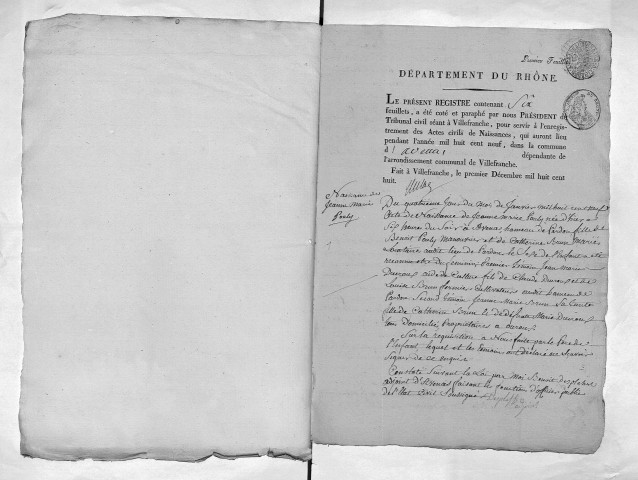 Premier Feuillet
DÉPARTEMENT DU RHÔNE.
LE PRÉSENT REGISTRE contenant Six
feuillets, a été coté et paraphé par nous PRÉSIDENT du
Tribunal civil séant à Villefranche, pour servir à l'enregis-
trement des Actes civils de Naissances, qui auront lieu
pendant l'année mil huit cent neuf, dans la commune
d' avenas dépendante de
l'arrondissement communal de Villefranche.
Fait à Villefranche, le premier Décembre mil huit cent
huit.
Naissance de
Jeanne Marie
Pouly
1
Du quatrième jour du mois de Janvier mil huit cent neuf
acte de Naissance de Jeanne Marie Pouly née d'hier a
Six heures du Soir à avenas hameau de Pardon fille de
Benoit Pouly Manoeuvre et de Catherine Brun Mariés
audit lieu de Pardon le Sexe de l'enfant a été
reconnu être féminin premier témoin Jean Marie
fils de Claude et de
Louise Brun fermiers Cultivateurs audit hameau de
Pardon Second témoin Jeanne Marie Brun Sa tante
fille de Catherin Brun et de défunte Marie
Son domicilié Propriétaires a avenas
Sur la requisition a Nous faite par le Père de
l'enfant, lequel et les témoins ont déclaré ne Scavoir
Signer de ce enquis
Constaté Suivant la Loi par Moi Benoit Desplaces
adjoint d'Avenas faisant les fonctions d'officier public
de l'état Civil Soussigné